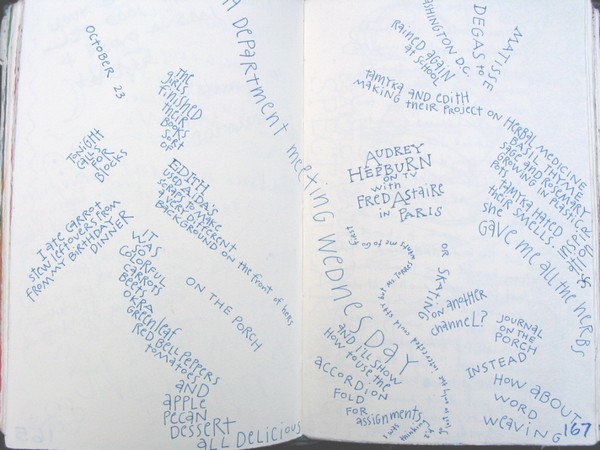 OCTOBER 23
THE
GIRLS
FINISHED
THEIR
BOOKS
SORT
OF
EDITH
USED AIDA'S
SCRAPS
to MAKE
A different
BACKGROUND ON the front of hers
TONIGHT
CALL
FOR
BLOCKS
I ate CARROT
stew leftovers from
FROM MY BIRTHDAY
DINNER
IT
WAS
SO
COLORFUL
CARROTS
BEETS
OKRA
GREEN leaf
RED BELL PEPPERS
tomatoes
AND
APPLE
PECAN
DESSERT
ALL DELICIOUS
ON THE PORCH
DEPARTMENT meeting WEDNESDAY
AND I'LL SHOW
HOW to USE THE
ACCORDION
FOLD
FOR
assignments
MATISSE
DEGAS to
WASHINGTON D.C.
RAINED AGAIN
AT SCHOOL
tAMYKA AND EDITH
MAKING their PROJECT ON HERBAL MEDICINE
BASIL THYME
SAGE AND ROSEMARY
GROWING IN PLASTIC
POTS
TAMYKA HATED
their SMELLS.
she
GAVE me ALL the HERBS
AUDREY
HEPBURN
ON TV
with
FRED AStaire
in PARIS
OR
SKATING
ON another
channel?
JOURNAL
ON THE
PORCH
INSTEAD
HOW ABOUT
WORD
WEAVING
I was
thinking
167